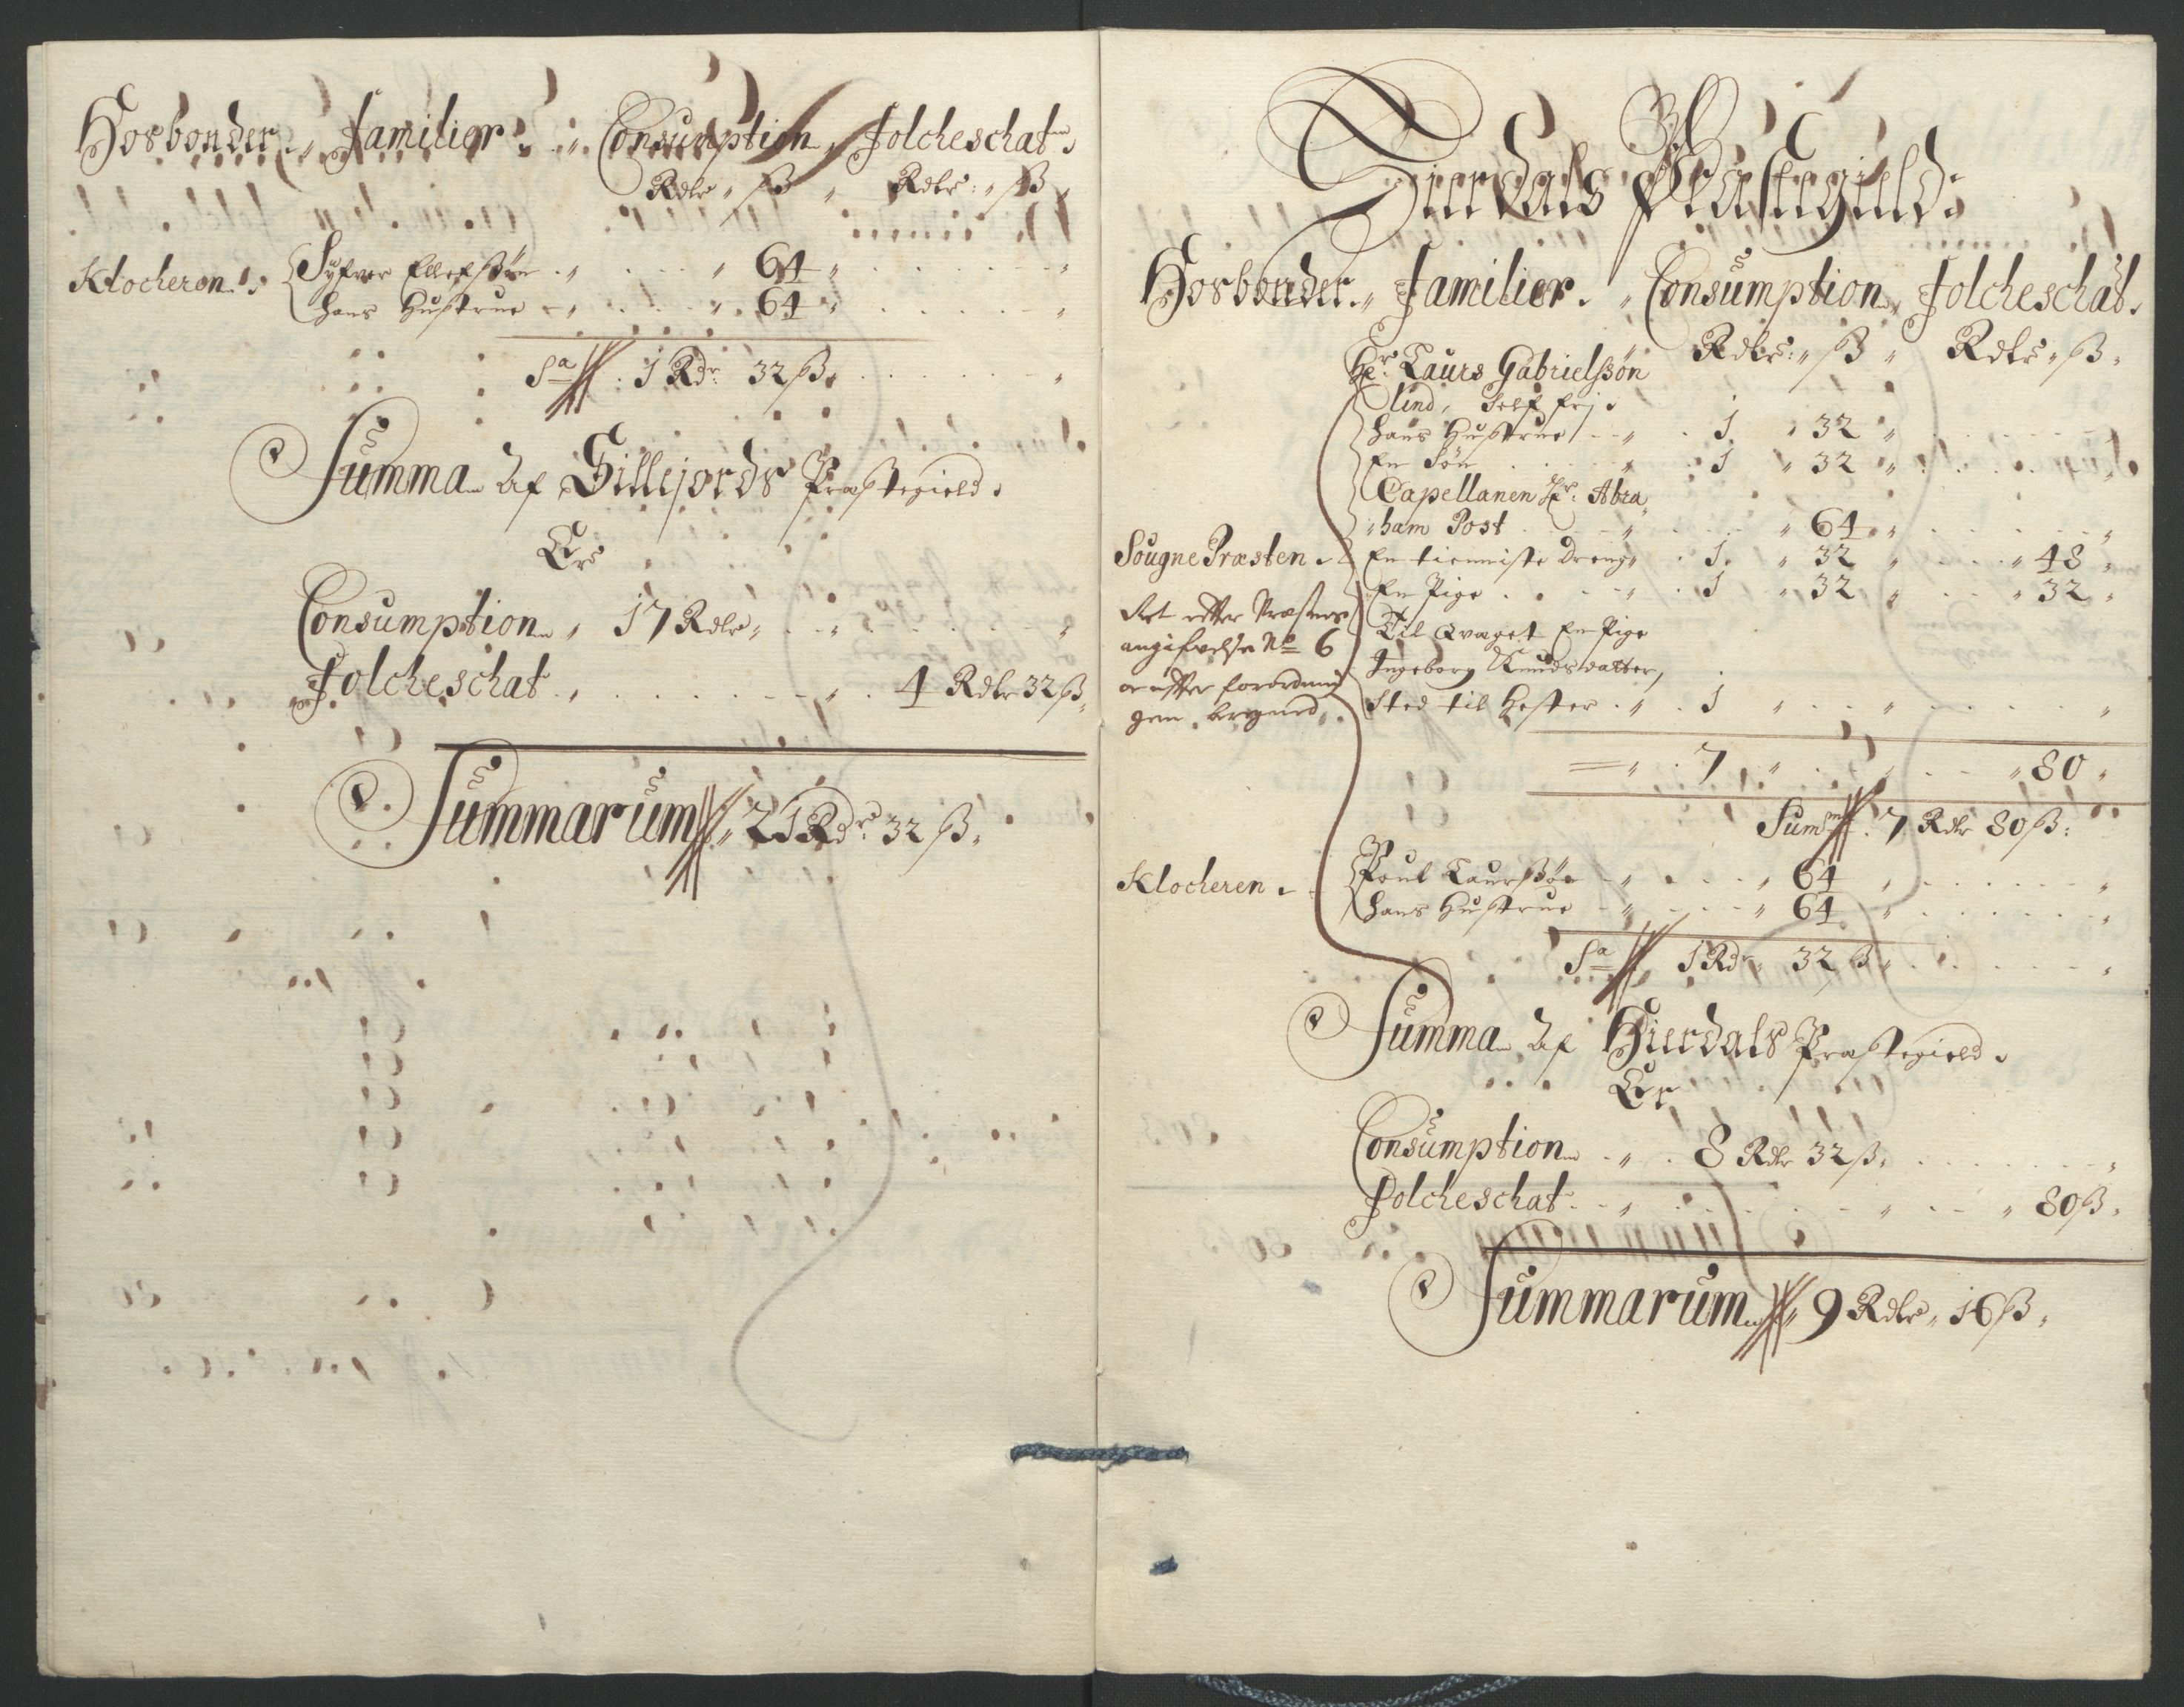 Hosbonder „ Familier „ Consumption „ Folcheschat.
Rdlr „ ß „ Rdlr: „ ß
Klocheren „ Syfver Ellefßøn „ „ 64 „ „
hans Hustrue „ „ 64 „ „
Sa 1 Rdr 32 ß. „
Summa Af Sillejords Præstegield.
Er
Consumption „ 17 Rdlr „ „ „
Folcheschat „ „ 4 Rdlr 32 ß „
Summarum „ 21 Rdr 32 ß.
Hierdals Præstegield:
Hosbonder „ Familier. „ Consumption „ Folcheschat.
Rdlr: „ ß „ Rdlr „ ß „
Hr. Laurs Gabrielsøn
lind, self frj.
hans Hustrue „ 1 „ 32 „
En Søn „ 1 „ 32 „
Capellanen Hr. Abra
„ham Post „ „ 64 „ „
Sougne Præsten „ En tienniste dreng „ 1. „ 32 „ „ 48 „
En Pige „ 1 „ 32 „ „ 32 „
Ret efter Præstens
Til Qvæget En Pige
angifvelse No 6
Ingeborg Knudsdatter,
og efter forordnin
gen beregned „
Sted til Hester „ 1 „ „ „
„ 7 „ „ „ 80 „
Summ 7 Rdlr 80 ß:
Klocheren „ Poul Laursßøn „ „ 64 „ „
hans Hustrue „ „ 64 „ „
Sa 1 Rdr „ 32 ß „ „
Summa Af Hierdals Præstegield.
Er
Consumption „ 8 Rdlr 32 ß „ „
Folcheschat „ „ „ 80 ß „
Summarum „ 9 Rdlr „ 16 ß „